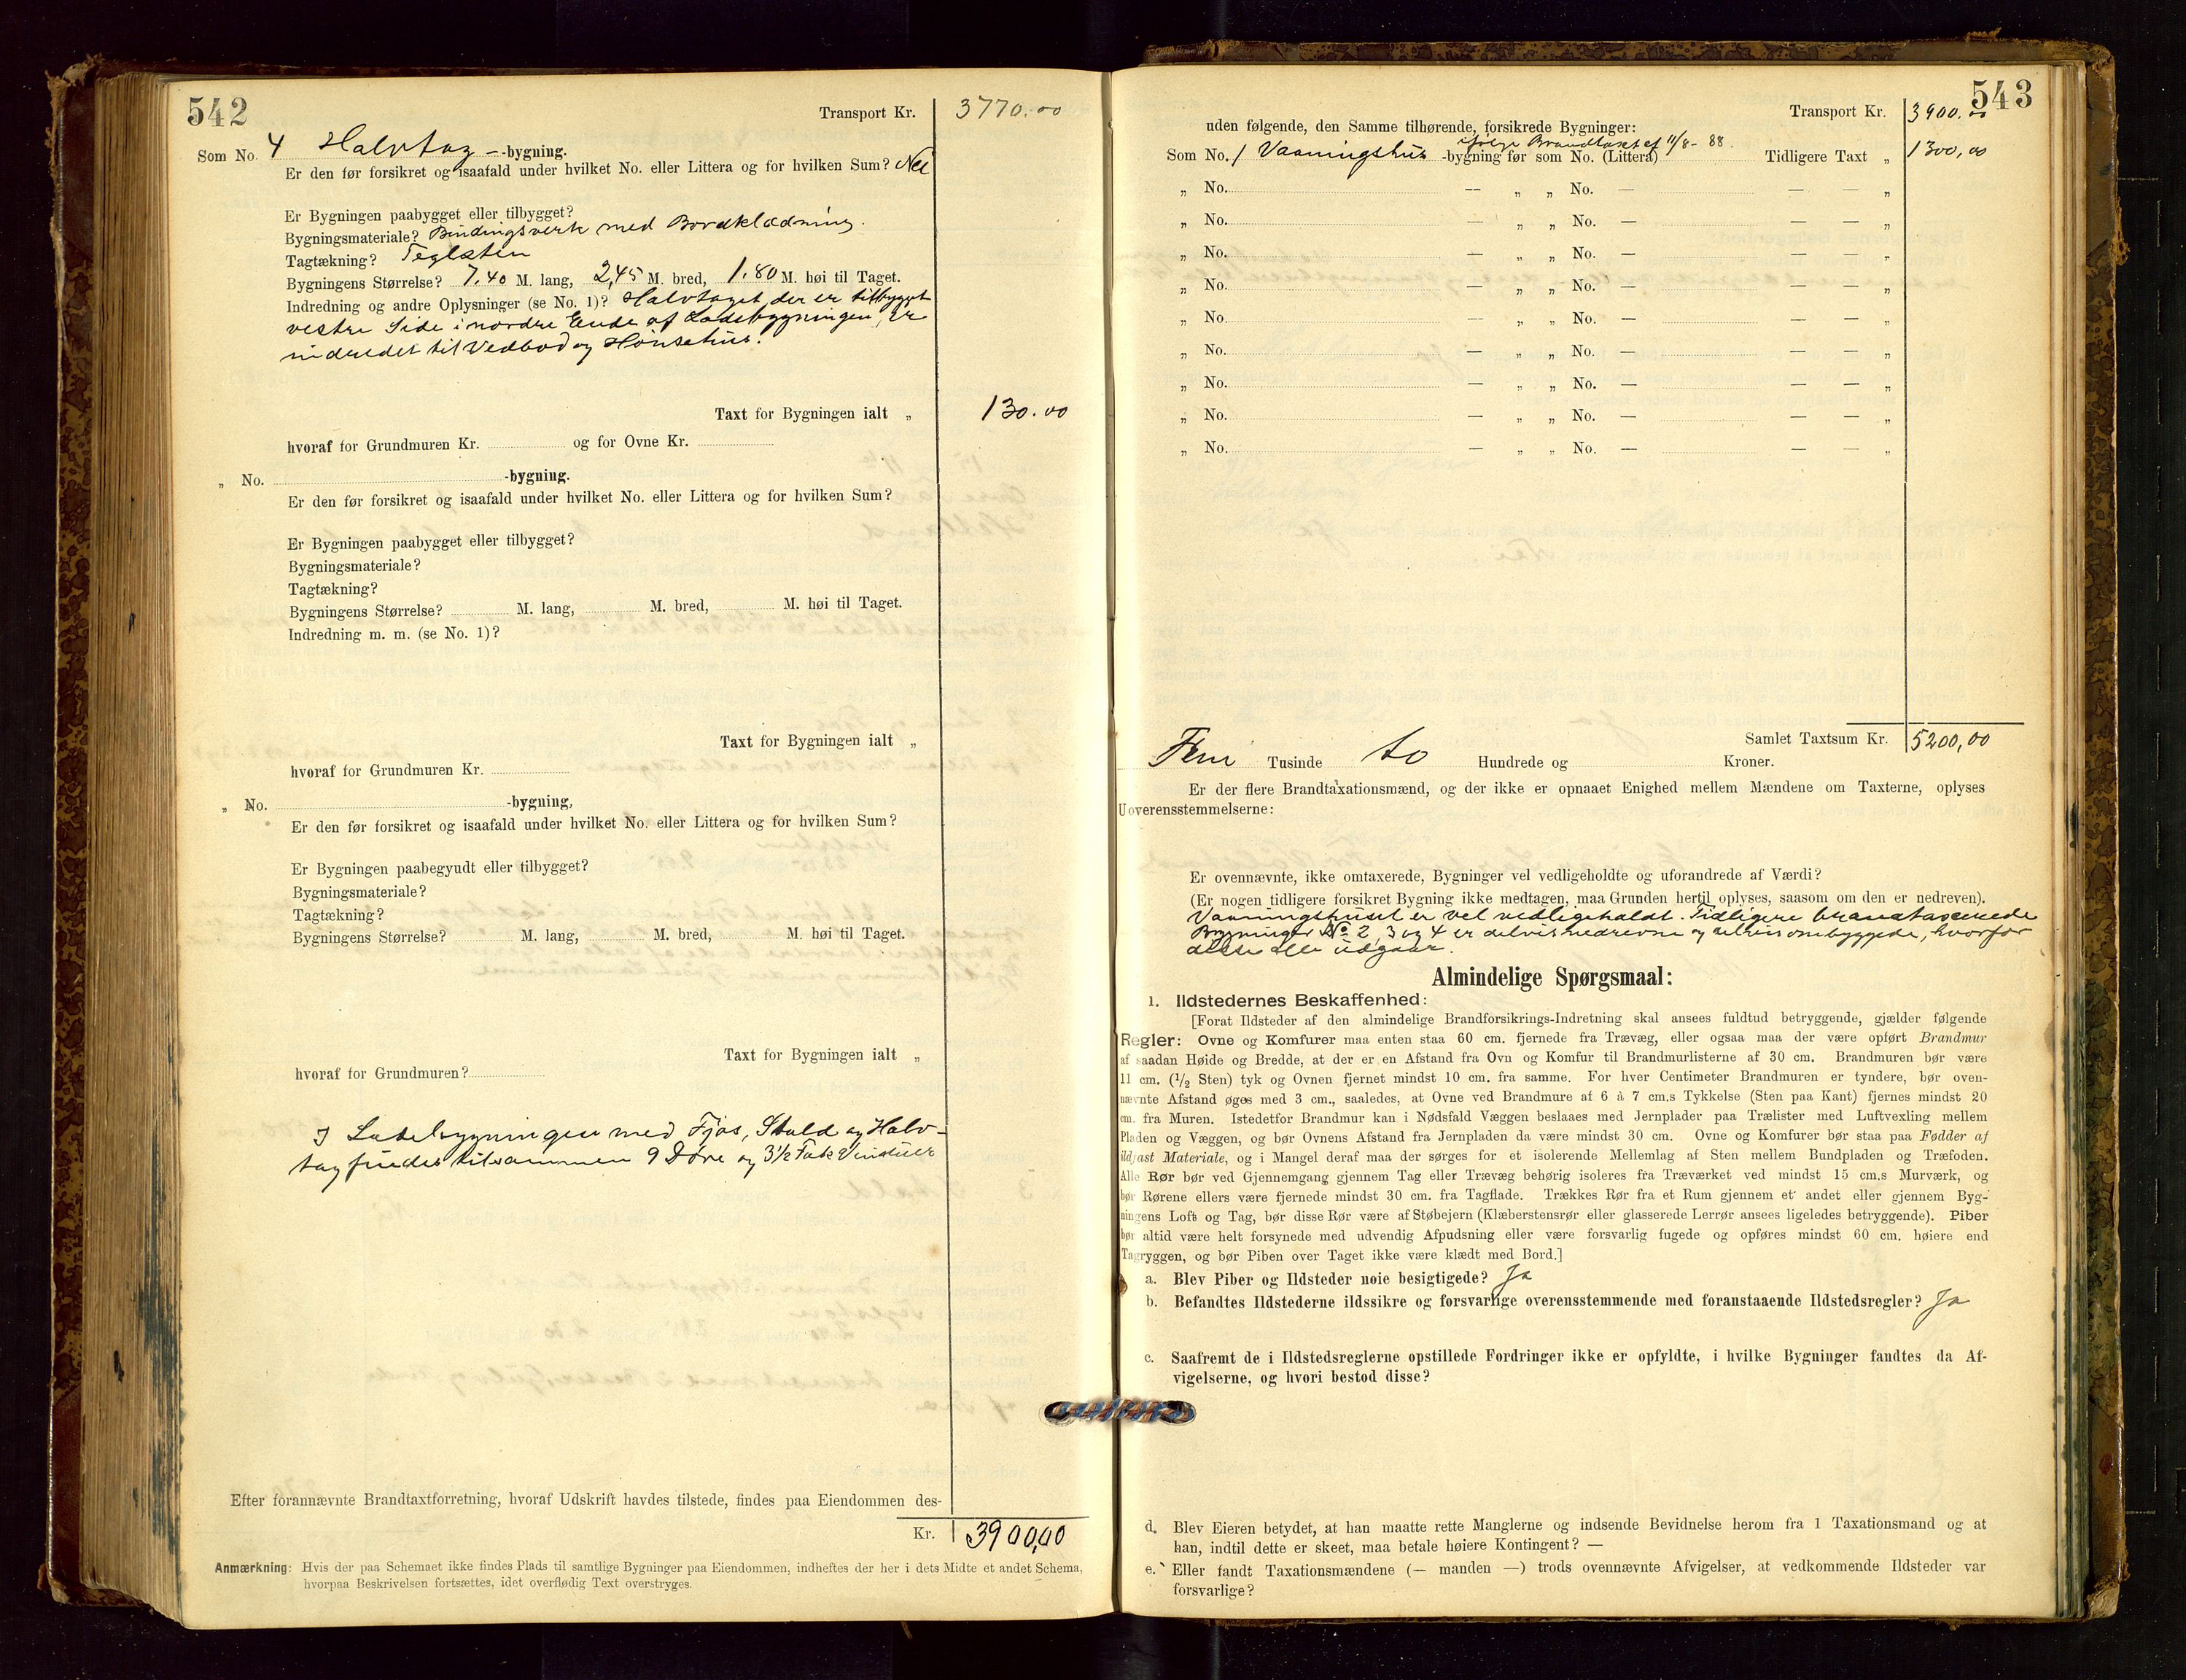 542
Transport Kr. 3770.00
Som No. 4 Halvtag -bygning.
Er den før forsikret og isaafald under hvilket No. eller Littera og for hvilken Sum? Nei
Er Bygningen paabygget eller tilbygget?
Bygningsmateriale? Bindingsverk med Bordklædning.
Tagtækning? Teglsten
Bygningens Størrelse? 7.40 M. lang, 2,45 M. bred, 1.80 M. høi til Taget.
Indredning og andre Oplysninger (se No. 1)? Halvtaget, der er tilbygget
vestre Side i nordre Ende af Ladebygningen, er
indredet til Vedbod og Hönsehus.
Taxt for Bygningen ialt „ 130.00
hvoraf for Grundmuren Kr. og for Ovne Kr.
„ No. -bygning.
Er den før forsikret og isaafald under hvilket No. eller Littera og for hvilken Sum?
Er Bygningen paabygget eller tilbygget?
Bygningsmateriale?
Tagtækning?
Bygningens Størrelse? M. lang, M. bred, M. høi til Taget.
Indredning m. m. (se No. 1)?
Taxt for Bygningen ialt „
hvoraf for Grundmuren Kr.
„ No. -bygning,
Er den før forsikret og isaafald under hvilket No. eller Littera og for hvilken Sum?
Er Bygningen paabegyudt eller tilbygget?
Bygningsmateriale?
Tagtækning?
Bygningens Størrelse? M. lang, M. bred, M. høi til Taget.
Taxt for Bygningen ialt „
hvoraf for Grundmuren?
I Ladebygningen med Fjøs, Stald og Halv-
tag findes tilsammen 9 Döre og 3½ Fak Vinduer
Efter forannævnte Brandtaxtforretning, hvoraf Udskrift havdes tilstede, findes paa Eiendommen des-
Kr. 3900,00
Anmærkning: Hvis der paa Schemaet ikke findes Plads til samtlige Bygninger paa Eiendommen, indheftes der her i dets Midte et andet Schema,
hvorpaa Beskrivelsen fortsættes, idet overflødig Text overstryges.
543
Transport Kr. 3900.00
uden følgende, den Samme tilhørende, forsikrede Bygninger:
ifølge Brandtaxt af 11/8-88.
Som No. 1 Vaaningshus -bygning før som No. (Littera) Tidligere Taxt „ 1300,00
„ No. — „ „ No. — — — „
„ No. — „ „ No. — — — „
„ No. — „ „ No. — — — „
„ No. — „ „ No. — — — „
„ No. — „ „ No. — — — „
„ No. — „ „ No. — — — „
„ No. — „ „ No. — — — „
„ No. — „ „ No. — — — „
„ No. — „ „ No. — — — „
Samlet Taxtsum Kr. 5200,00
Fem Tusinde to Hundrede og Kroner.
Er der flere Brandtaxationsmænd, og der ikke er opnaaet Enighed mellem Mændene om Taxterne, oplyses
Uoverensstemmelserne:
Er ovennævnte, ikke omtaxerede, Bygninger vel vedligeholdte og uforandrede af Værdi?
(Er nogen tidligere forsikret Bygning ikke medtagen, maa Grunden hertil oplyses, saasom om den er nedreven).
Vaaningshuset er vel vedligeholdt. Tidligere brandtaxerede
Bygninger No 2, 3 og 4 er delvis nedrevne og delvis ombyggede, hvorfor
disse alle udgaar.
Almindelige Spørgsmaal:
1. Ildstedernes Beskaffenhed:
[Forat Ildsteder af den almindelige Brandforsikrings-Indretning skal ansees fuldtud betryggende, gjælder følgende
Regler: Ovne og Komfurer maa enten staa 60 cm. fjernede fra Trævæg, eller ogsaa maa der være opført Brandmur
af saadan Høide og Bredde, at der er en Afstand fra Ovn og Komfur til Brandmurlisterne af 30 cm. Brandmuren bør være
11 cm. (1/2 Sten) tyk og Ovnen fjernet mindst 10 cm. fra samme. For hver Centimeter Brandmuren er tyndere, bør oven-
nævnte Afstand øges med 3 cm., saaledes, at Ovne ved Brandmure af 6 à 7 cm.s Tykkelse (Sten paa Kant) fjernes mindst 20
cm. fra Muren. Istedetfor Brandmur kan i Nødsfald Væggen beslaaes med Jernplader paa Trælister med Luftvexling mellem
Pladen og Væggen, og bør Ovnens Afstand fra Jernpladen da være mindst 30 cm. Ovne og Komfurer bør staa paa Fødder af
ildfast Materiale, og i Mangel deraf maa der sørges for et isolerende Mellemlag af Sten mellem Bundpladen og Træfoden.
Alle Rør bør ved Gjennemgang gjennem Tag eller Trævæg behørig isoleres fra Træværket ved mindst 15 cm.s Murværk, og
bør Rørene ellers være fjernede mindst 30 cm. fra Tagflade. Trækkes Rør fra et Rum gjennem et andet eller gjennem Byg-
ningens Loft og Tag, bør disse Rør være af Støbejern (Klæberstensrør eller glasserede Lerrør ansees ligeledes betryggende). Piber
bør altid være helt forsynede med udvendig Afpudsning eller være forsvarlig fugede og opføres mindst 60 cm. høiere end
Tagryggen, og bør Piben over Taget ikke være klædt med Bord.]
a. Blev Piber og Ildsteder nøie besigtigede? Ja
b. Befandtes Ildstederne ildssikre og forsvarlige overensstemmende med foranstaaende Ildstedsregler? Ja
c. Saafremt de i Ildstedsreglerne opstillede Fordringer ikke er opfyldte, i hvilke Bygninger fandtes da Af-
vigelserne, og hvori bestod disse?
d. Blev Eieren betydet, at han maatte rette Manglerne og indsende Bevidnelse herom fra 1 Taxationsmand og at
han, indtil dette er skeet, maa betale høiere Kontingent? —
e. Eller fandt Taxationsmændene (— manden —) trods ovennævnte Afvigelser, at vedkommende Ildsteder var
forsvarlige?